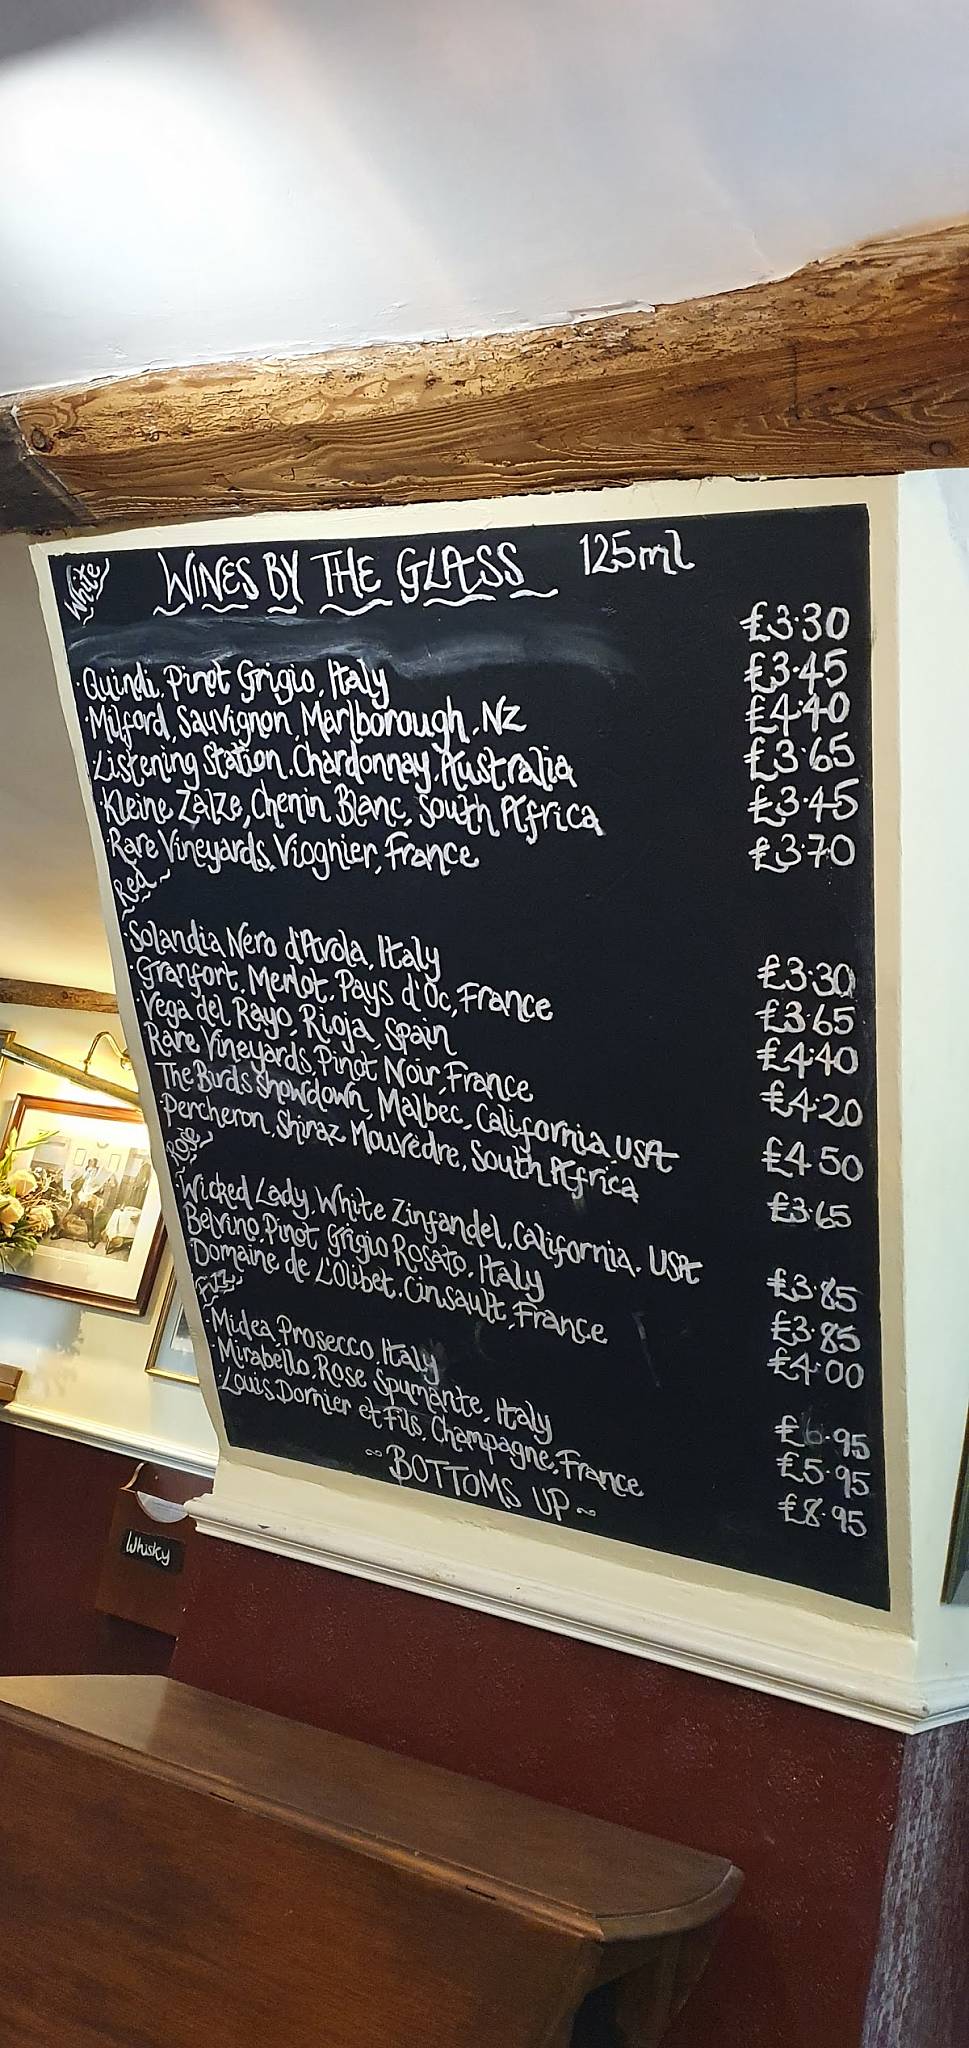 White WINES BY THE GLASS 125ml
£3.30
Quindi, Pinot Grigio, Italy £3.45
Milford, Sauvignon, Marlborough, NZ £4.40
Listening Station, Chardonnay, Australia £3.65
Kleine Zalze, Chenin Blanc, South Africa £3.45
Rare Vineyards, Viognier, France £3.70
Red
Solandia Nero d'Avola, Italy £3.30
Granfort, Merlot, Pays d'Oc, France £3.65
Vega del Rayo, Rioja, Spain £4.40
Rare Vineyards, Pinot Noir, France £4.20
The Burds Showdown, Malbec, California, USA £4.50
Percheron, Shiraz Mouvedre, South Africa £3.65
Rosé
Wicked Lady, White Zinfandel, California, USA £3.85
Belvino, Pinot Grigio Rosato, Italy £3.85
Domaine de L'Olibet, Cinsault, France £4.00
Fizz
Midea, Prosecco, Italy £6.95
Mirabello, Rose Spumante, Italy £5.95
Louis Dornier et Fils, Champagne, France £8.95
~ BOTTOMS UP ~
Whisky